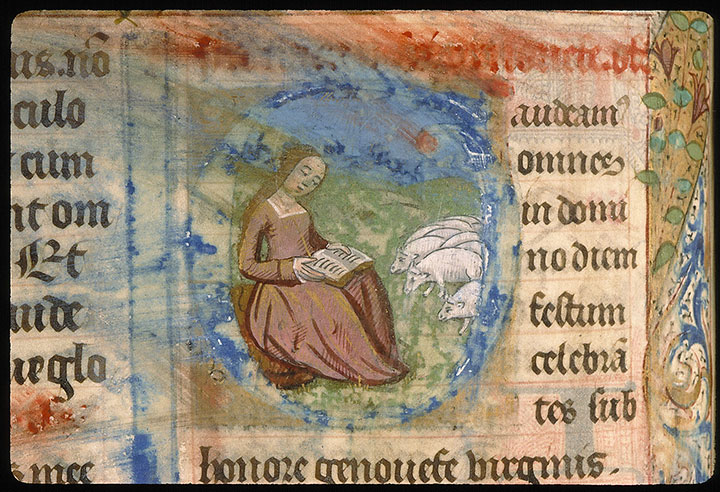 us. nõ
culo
cum
nt om
Et
ue glo
s mee
audeamꝰ
omnes
in domi
no diem
festum
celebrã
tes sub
honore genouefe virginis.